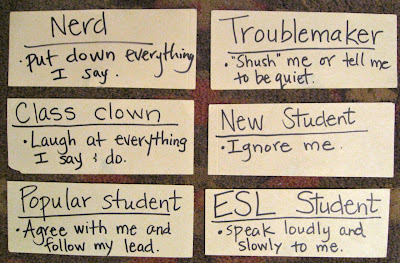 Nerd
• Put down everything
I say.
Troublemaker
• "Shush" me or tell me
to be quiet.
Class clown
• Laugh at everything
I say & do.
New Student
• Ignore me.
Popular student
• Agree with me and
follow my lead.
ESL Student
• speak loudly and
slowly to me.